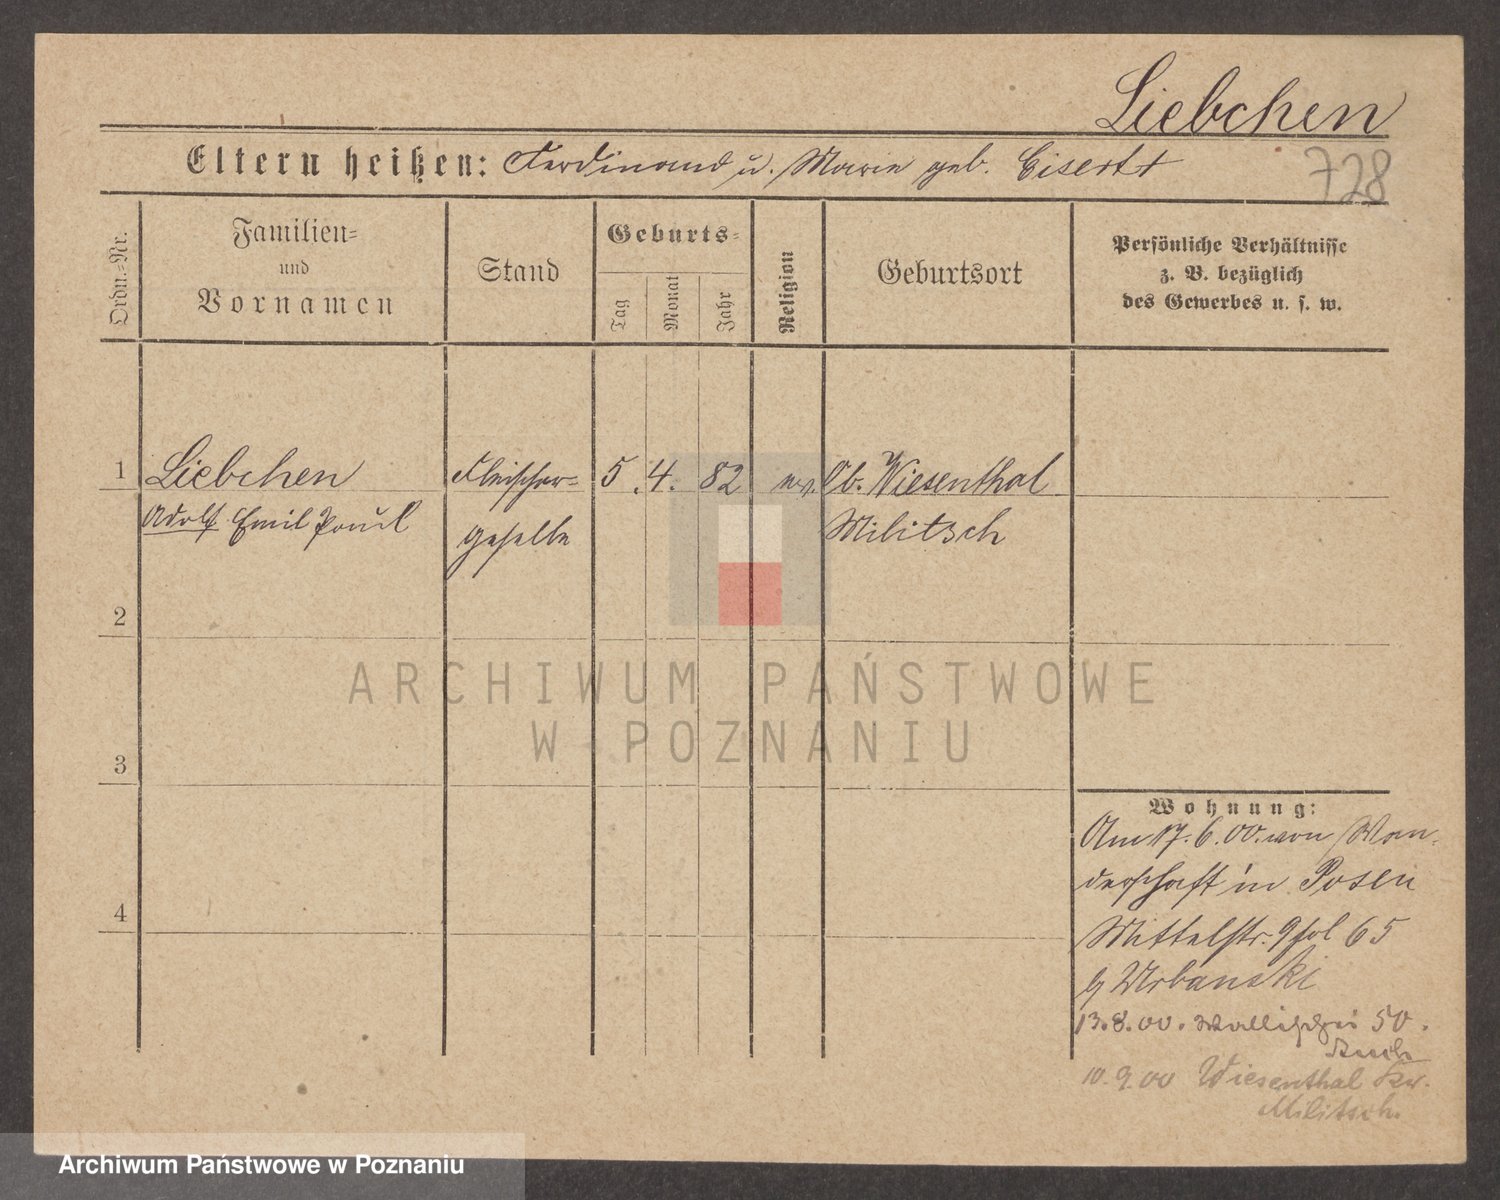 Liebchen
Eltern heißen: Ferdinand u. Marie geb. Eisert †
728
Ordn.=Nr.
Familien=
und
Vornamen
Stand
Geburts=
Tag
Monat
Jahr
Religion
Geburtsort
Persönliche Verhältnisse
z. B. bezüglich
des Gewerbes u. s. w.
1 Liebchen Fleischer= 5. 4. 82 ev. Ob. Wiesenthal
Adolf Emil Paul geselle Militsch
2
ARCHIWUM PAŃSTWOWE
W POZNANIU
3
Wohnung:
Am 17. 6. 00. von Wan-
derschaft in Posen
4
Mittelstr. 65
Urbanski
13.8.00. Wallischei 50.
10.9.00 Wiesenthal Kr.
Militsch.
Archiwum Państwowe w Poznaniu